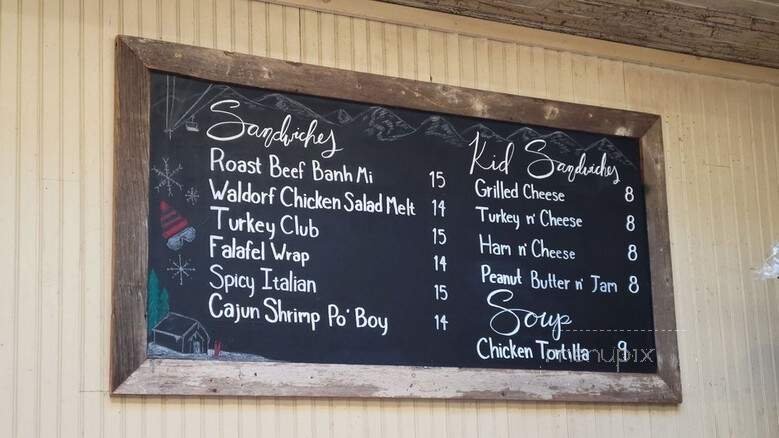 Sandwiches
Roast Beef Banh Mi 15
Waldorf Chicken Salad Melt 14
Turkey Club 15
Falafel Wrap 14
Spicy Italian 15
Cajun Shrimp Po' Boy 14
Kid Sandwiches
Grilled Cheese 8
Turkey n' Cheese 8
Ham n' Cheese 8
Peanut Butter n' Jam 8
Soup
Chicken Tortilla 9
menupix